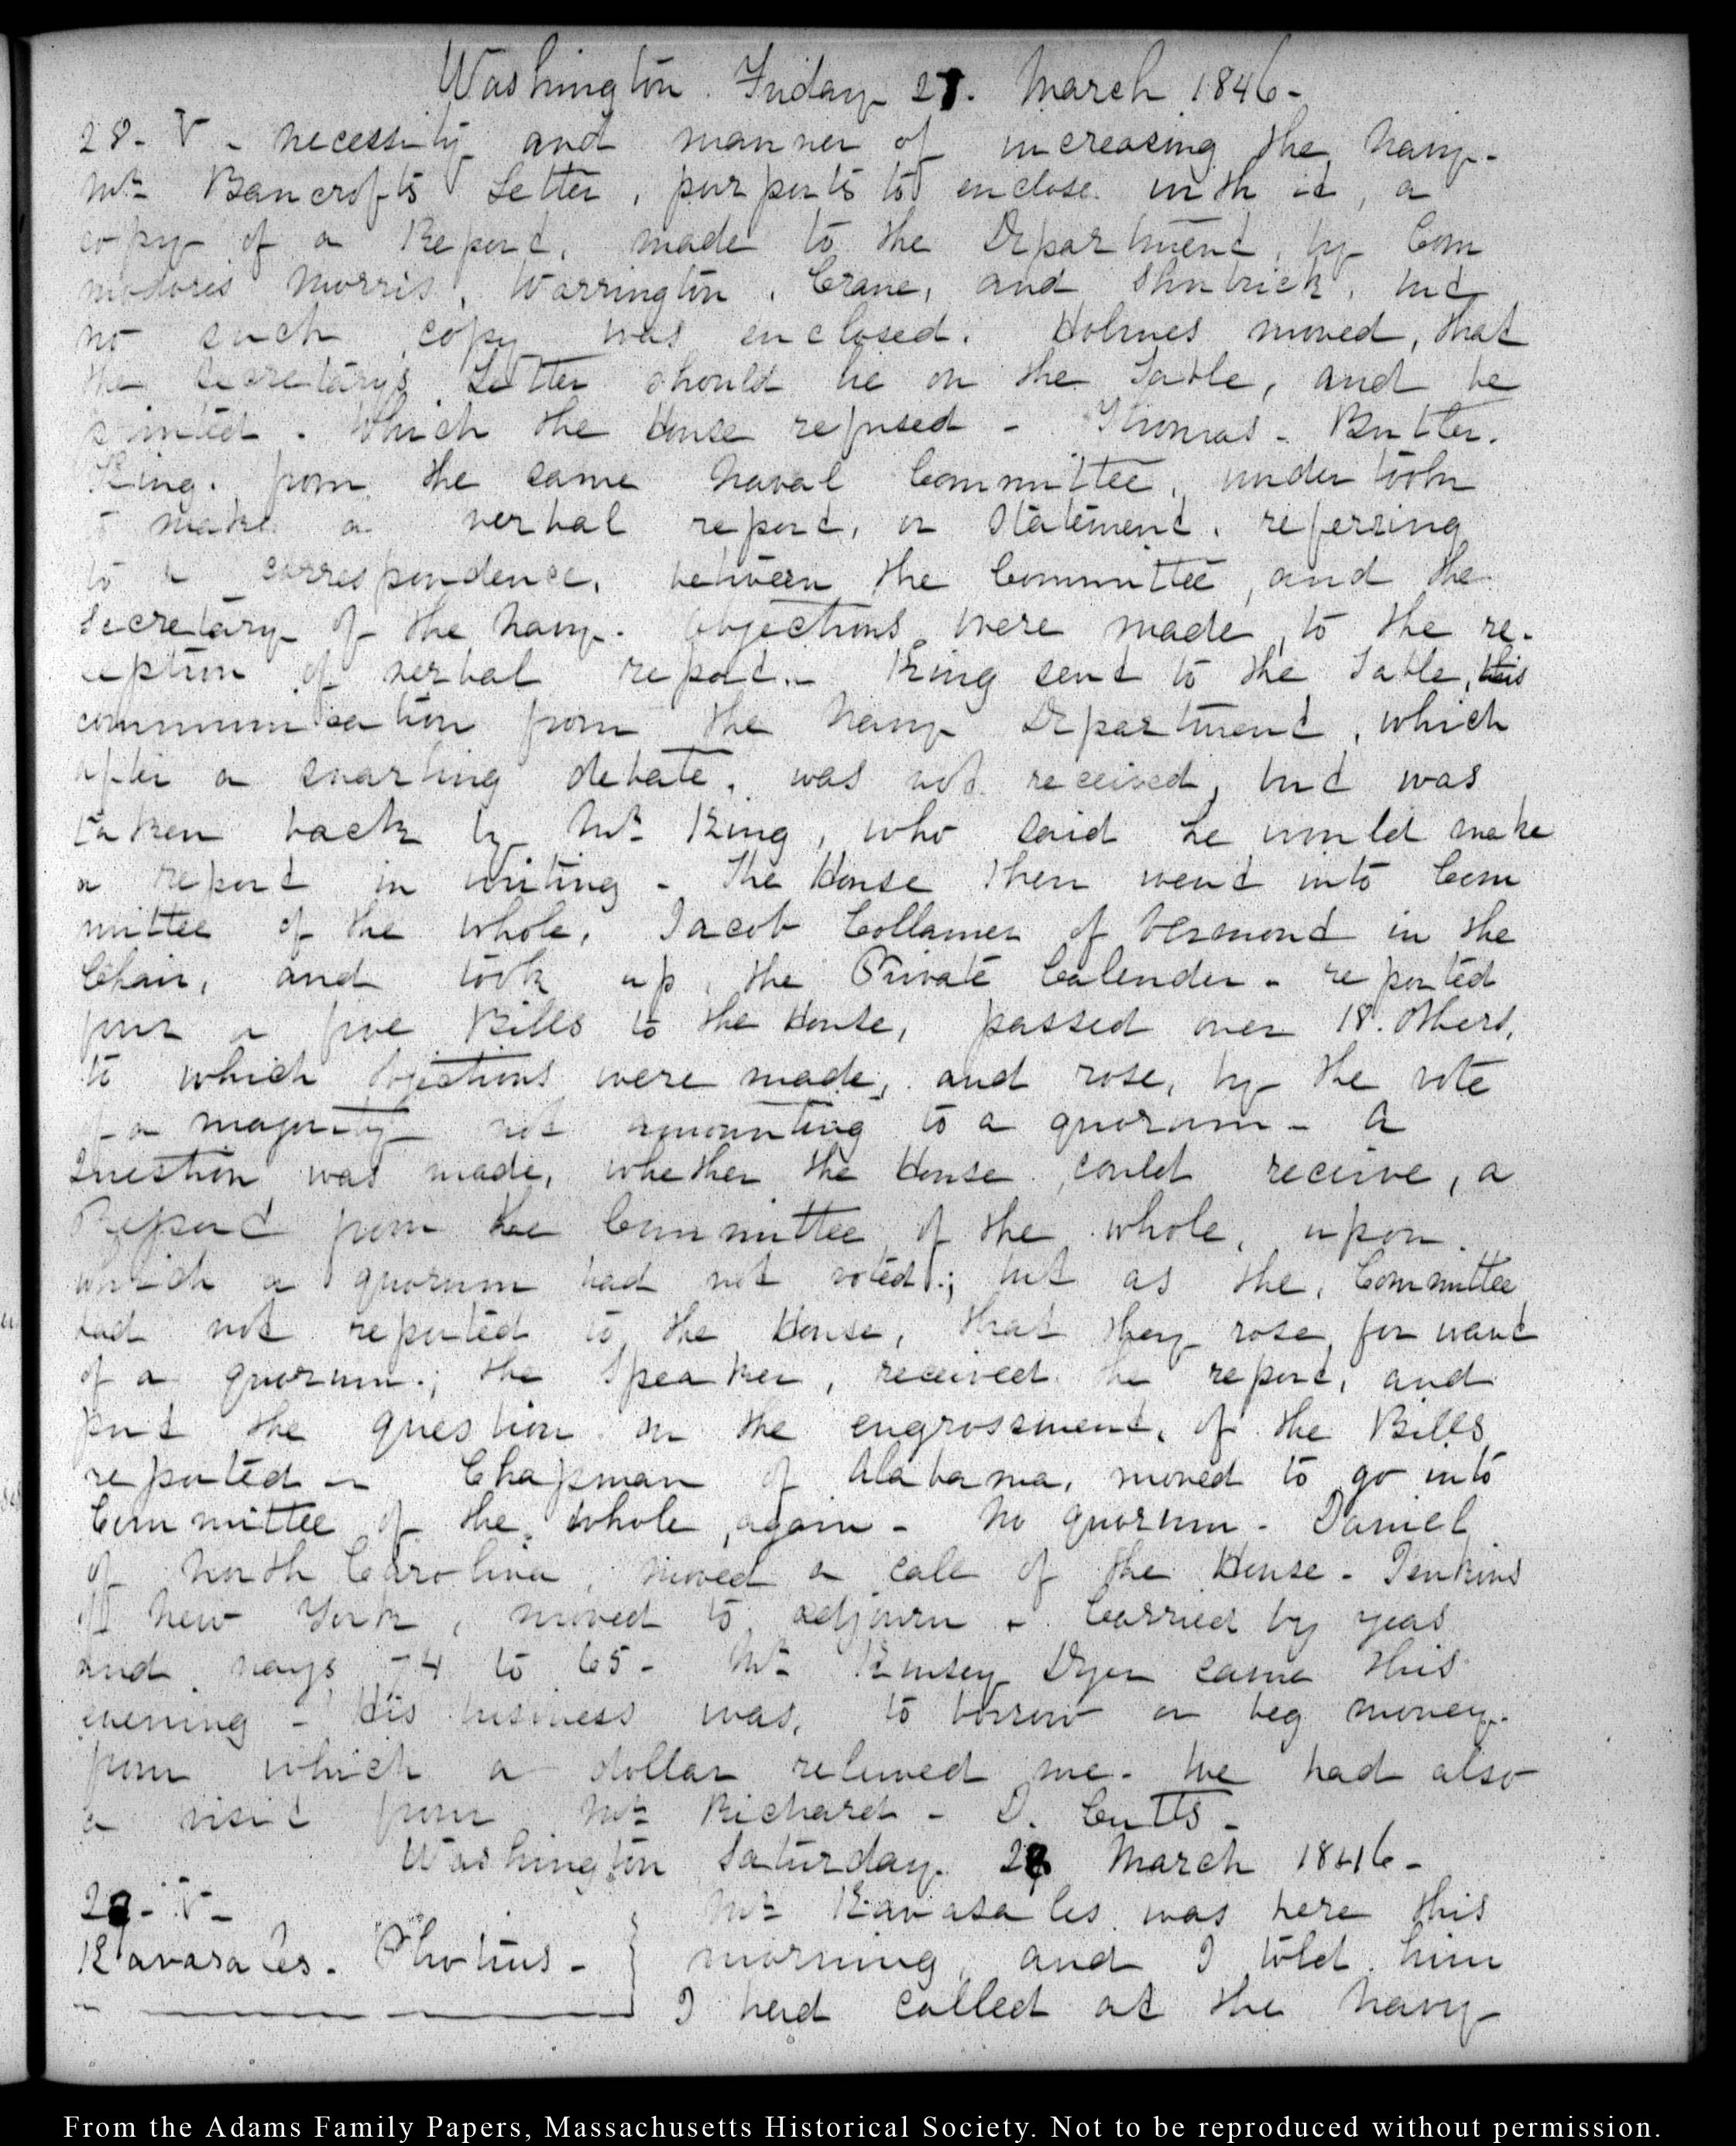 Washington. Friday 27. March 1846-
28. V - necessity and manner of increasing the Navy.
Mr. Bancroft's Letter, purports to enclose with it, a
copy of a Report, made to the Department, by Com
modores Morris, Warrington, Crane, and Shubrick, but
no such copy was enclosed. Holmes moved, that
the Secretary's Letter should lie on the Table, and be
printed. Which the House refused - Thomas - Butler.
King. from the same Naval Committee, undertook
to make a verbal report, or statement, referring
to a correspondence, between the Committee, and the
Secretary of the Navy. Objections were made, to the re-
ception of verbal report. - King sent to the Table, this
communication from the Navy Department, which
after a snarling debate, was not received, but was
taken back by Mr. King, who said he would make
a report in writing - The House then went into Com
mittee of the whole, Jacob Collamer of Vermont in the
Chair, and took up, the Private Calender - reported
four or five Bills to the House, passed over 18. others,
to which objections were made; and rose, by the vote
of a majority not amounting to a quorum - A
question was made, whether the House could receive, a
Report from the Committee of the whole, upon
which a quorum had not voted; but as the, Committee
had not reported to the House, that they rose for want
of a quorum; the Speaker, received the report, and
put the question on the engrossment, of the Bills
reported - Chapman of Alabama, moved to go into
Committee of the whole again - No quorum - Daniel
of North Carolina, moved a call of the House - Jenkins
of New York, moved to adjourn - Carried by yeas
and nays 74 to 65 - Mr. Kinsey Dyer came this
evening - His business was, to borrow or beg money.
from which a dollar relieved me. We had also
a visit from Mr. Richard - D. Cutts -
Washington Saturday. 28 March 1846 -
28 - V - Mr. Kavasales was here this
Kavasales. Photius - } morning, and I told him
I had called at the Navy
From the Adams Family Papers, Massachusetts Historical Society. Not to be reproduced without permission.